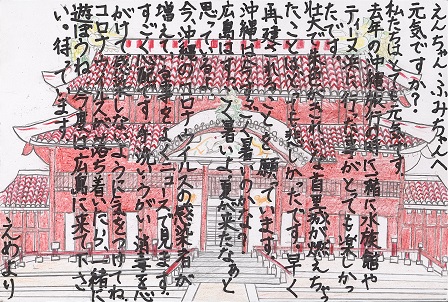 えんちゃん・ふみ君へ
元気ですか?
私たちはとても元気です。
去年の沖縄旅行の時に一緒に水族館や
ティー 浜に行った事がとても楽しかっ
たです。
壮大できれいな首里城が燃えちゃっ
たことはとても悲しかったです。早く
再建される 願っています。
沖縄はもうすごく暑いのかな?
広島はすごく暑いよ。夏が来たなぁと
思ってるよ。
今、沖縄のコロナウイルスの感染者が
増えている事をよくニュースで見ます。
すごく心配です。手洗い・うがい・消毒を心
がけて感染しないように気をつけてね。
コロナウイルスが落ち着いたら、一緒に
遊ぼうね。今度は広島に来て下さ
い。待ってます。
えめより